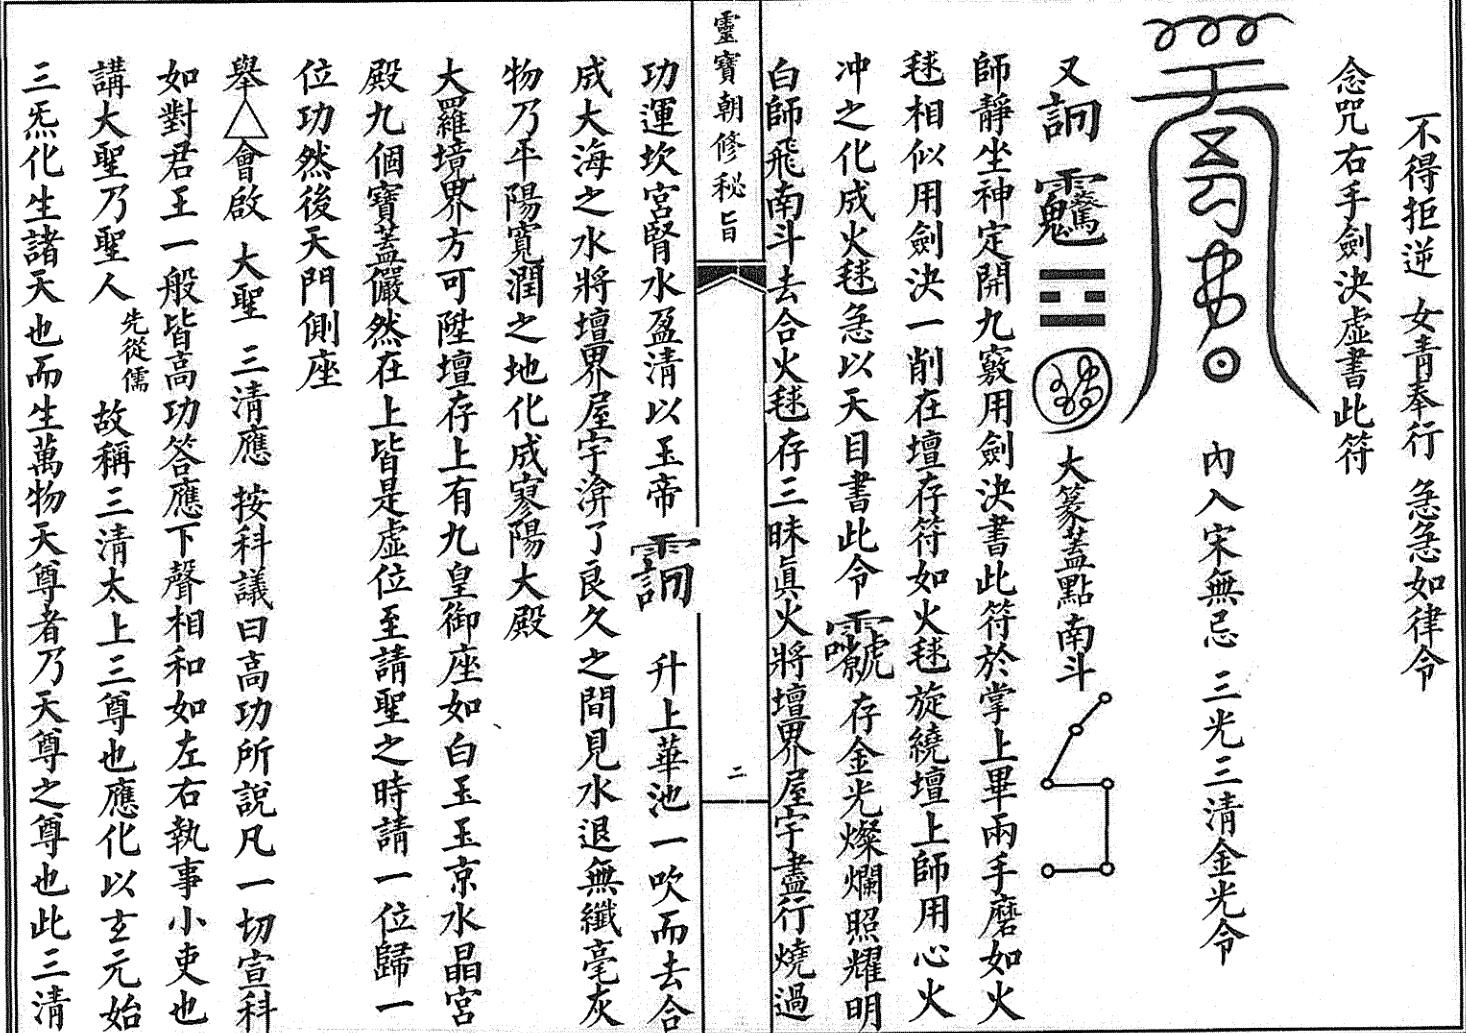 不得拒逆 女青奉行 急急如律令
念咒右手劍決虛書此符
內入宋無忌 三光三清金光令
又 大篆蓋點南斗
師靜坐神定開九竅用劍決書此符於掌上畢兩手磨如火
毬相似用劍決一削在壇存符如火毬旋繞壇上師用心火
冲之化成火毬急以天目書此令 存金光燦爛照耀明
白師飛南斗去合火毬存三昧眞火將壇界屋宇盡行燒過
靈寶朝修秘旨
二
功運坎宮腎水盈清以玉帝 升上華池一吹而去合
成大海之水將壇界屋宇渰了良久之間見水退無纖毫灰
物乃平陽寬潤之地化成寥陽大殿
大羅境界方可陞壇存上有九皇御座如白玉玉京水晶宮
殿九個寶蓋儼然在上皆是虛位至請聖之時請一位歸一
位功然後天門側座
舉△會啟 大聖 三清應 按科議曰高功所說凡一切宣科
如對君王一般皆高功答應下聲相和如左右執事小吏也
講大聖乃聖人 先從儒 故稱三清太上三尊也應化以玄元始
三炁化生諸天也而生萬物天尊者乃天尊之尊也此三清